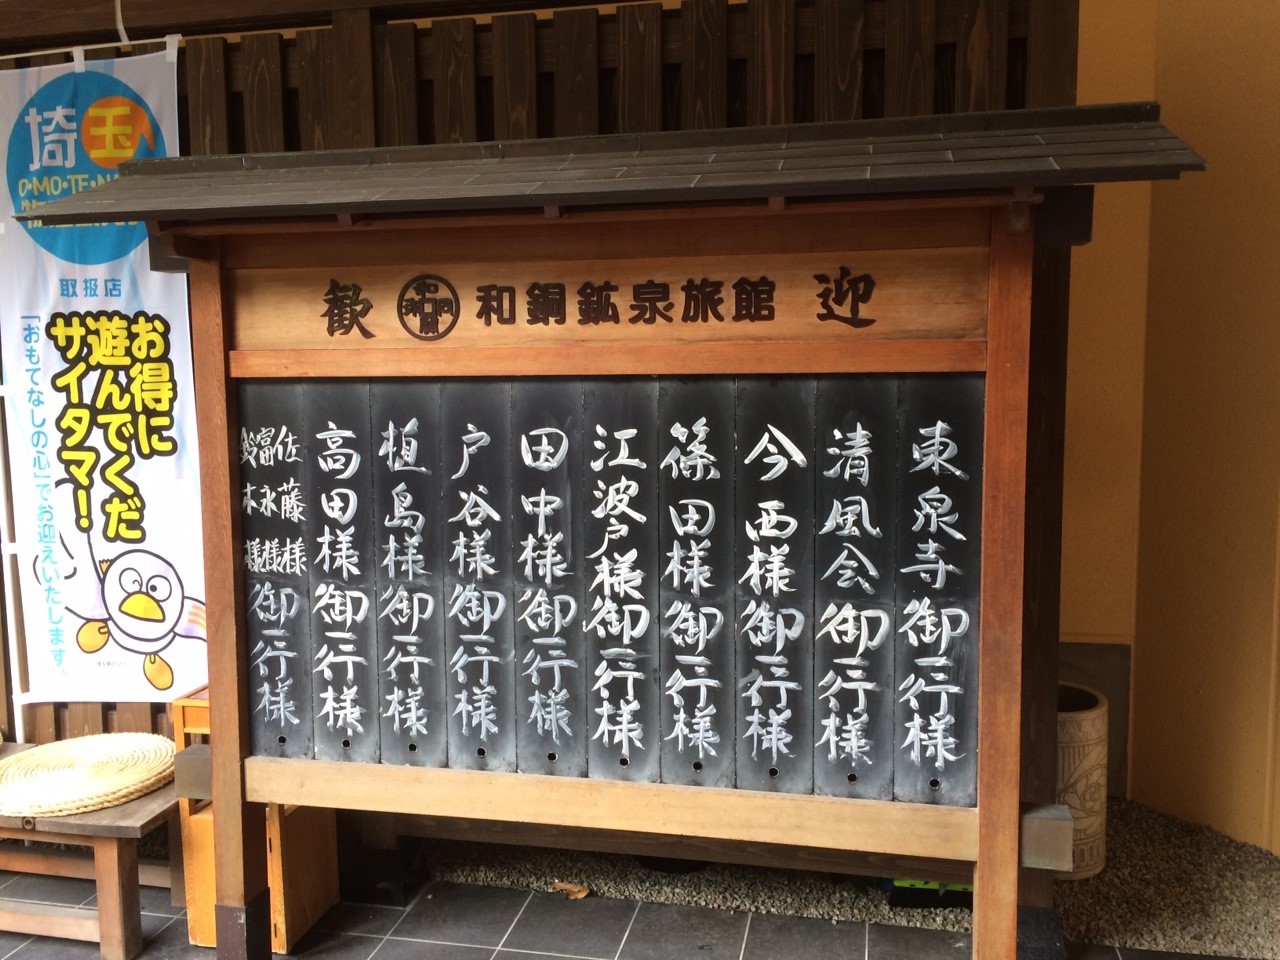 歓 和銅鉱泉旅館 迎
東泉寺御一行様
清風会御一行様
今西様御一行様
篠田様御一行様
江波戸様御一行様
田中様御一行様
戸谷様御一行様
植島様御一行様
高田様御一行様
佐藤様
富永様
鈴木様
御一行様
埼玉
O・MO・TE・NA
取扱店
お得に
遊んでくだ
サイタマ!
「おもてなしの心」でお迎えいたします。